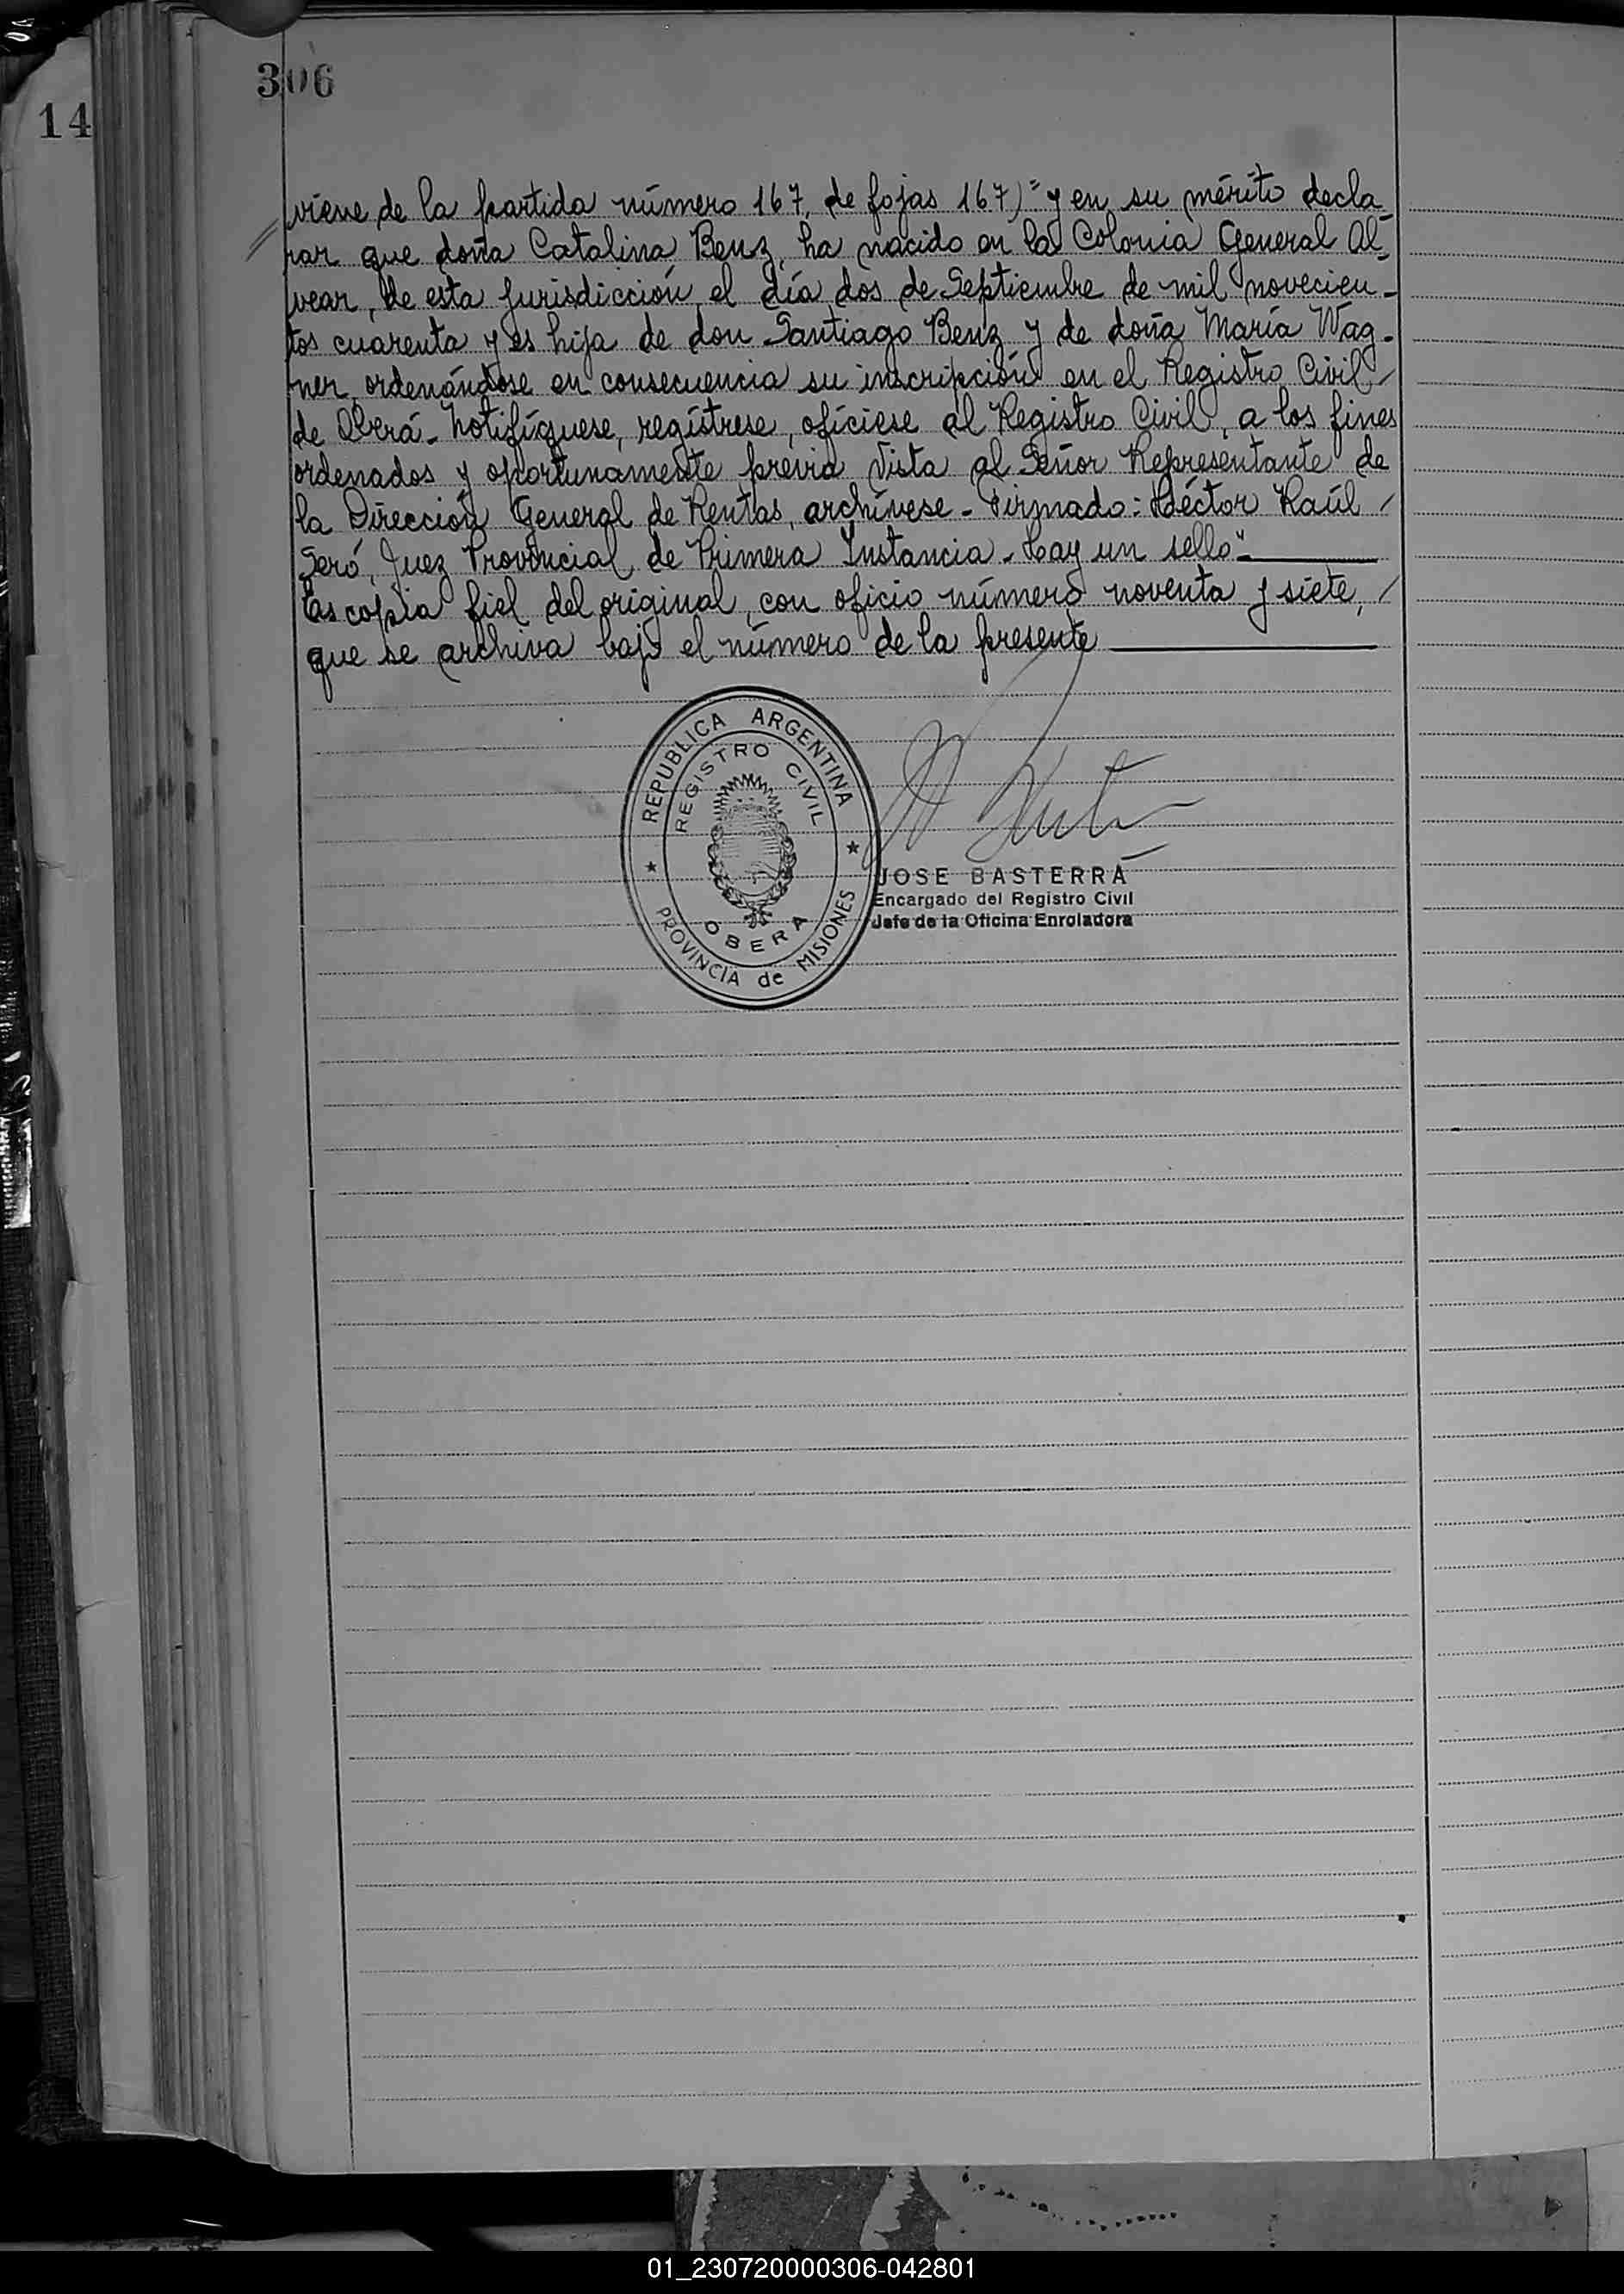 306
14
viene de la partida número 167, de fojas 167)" y en su mérito decla-
rar que doña Catalina Benz, ha nacido en la Colonia General Al-
vear, de esta jurisdicción, el día dos de Septiembre de mil novecien-
tos cuarenta y es hija de don Santiago Benz y de doña María Wag-
ner, ordenándose en consecuencia su inscripción en el Registro Civil /
de Oberá.- Notifíquese, regístrese, ofíciese al Registro Civil, a los fines
ordenados y oportunamente previa vista al Señor Representante de
la Dirección General de Rentas, archívese.- Firmado: Héctor Raúl /
Seró, Juez Provincial de Primera Instancia.- Hay un sello".-
Es copia fiel del original, con oficio número noventa y siete, /
que se archiva bajo el número de la presente
REPUBLICA ARGENTINA
REGISTRO CIVIL
OBERA
PROVINCIA de MISIONES
JOSE BASTERRA
Encargado del Registro Civil
Jefe de la Oficina Enroladora
01_230720000306-042801